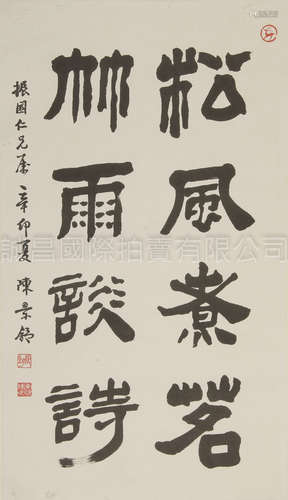 松風煮茗
竹雨談詩
振國仁兄屬 辛卯夏 陳景舒
誼昌國際拍賣有限公司